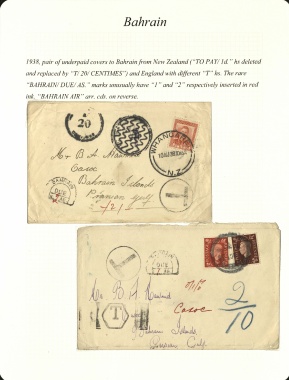 Bahrain
1938, pair of underpaid covers to Bahrain from New Zealand ("TO PAY/ 1d." hs deleted
and replaced by "T/ 20/ CENTIMES") and England with different "T" hs. The rare
"BAHRAIN/ DUE/ AS." marks unusually have "1" and "2" respectively inserted in red
ink, "BAHRAIN AIR" arr. cds. on reverse.
20
WHANGAREI
N.Z.
Mr & B A
Casoc
Bahrain Islands
Persian Gulf
BAHRAIN
DUE
T
BAHRAIN
DUE
T
T
Mr B A
Casoc
Bahrain Islands
Persian Gulf
2/10